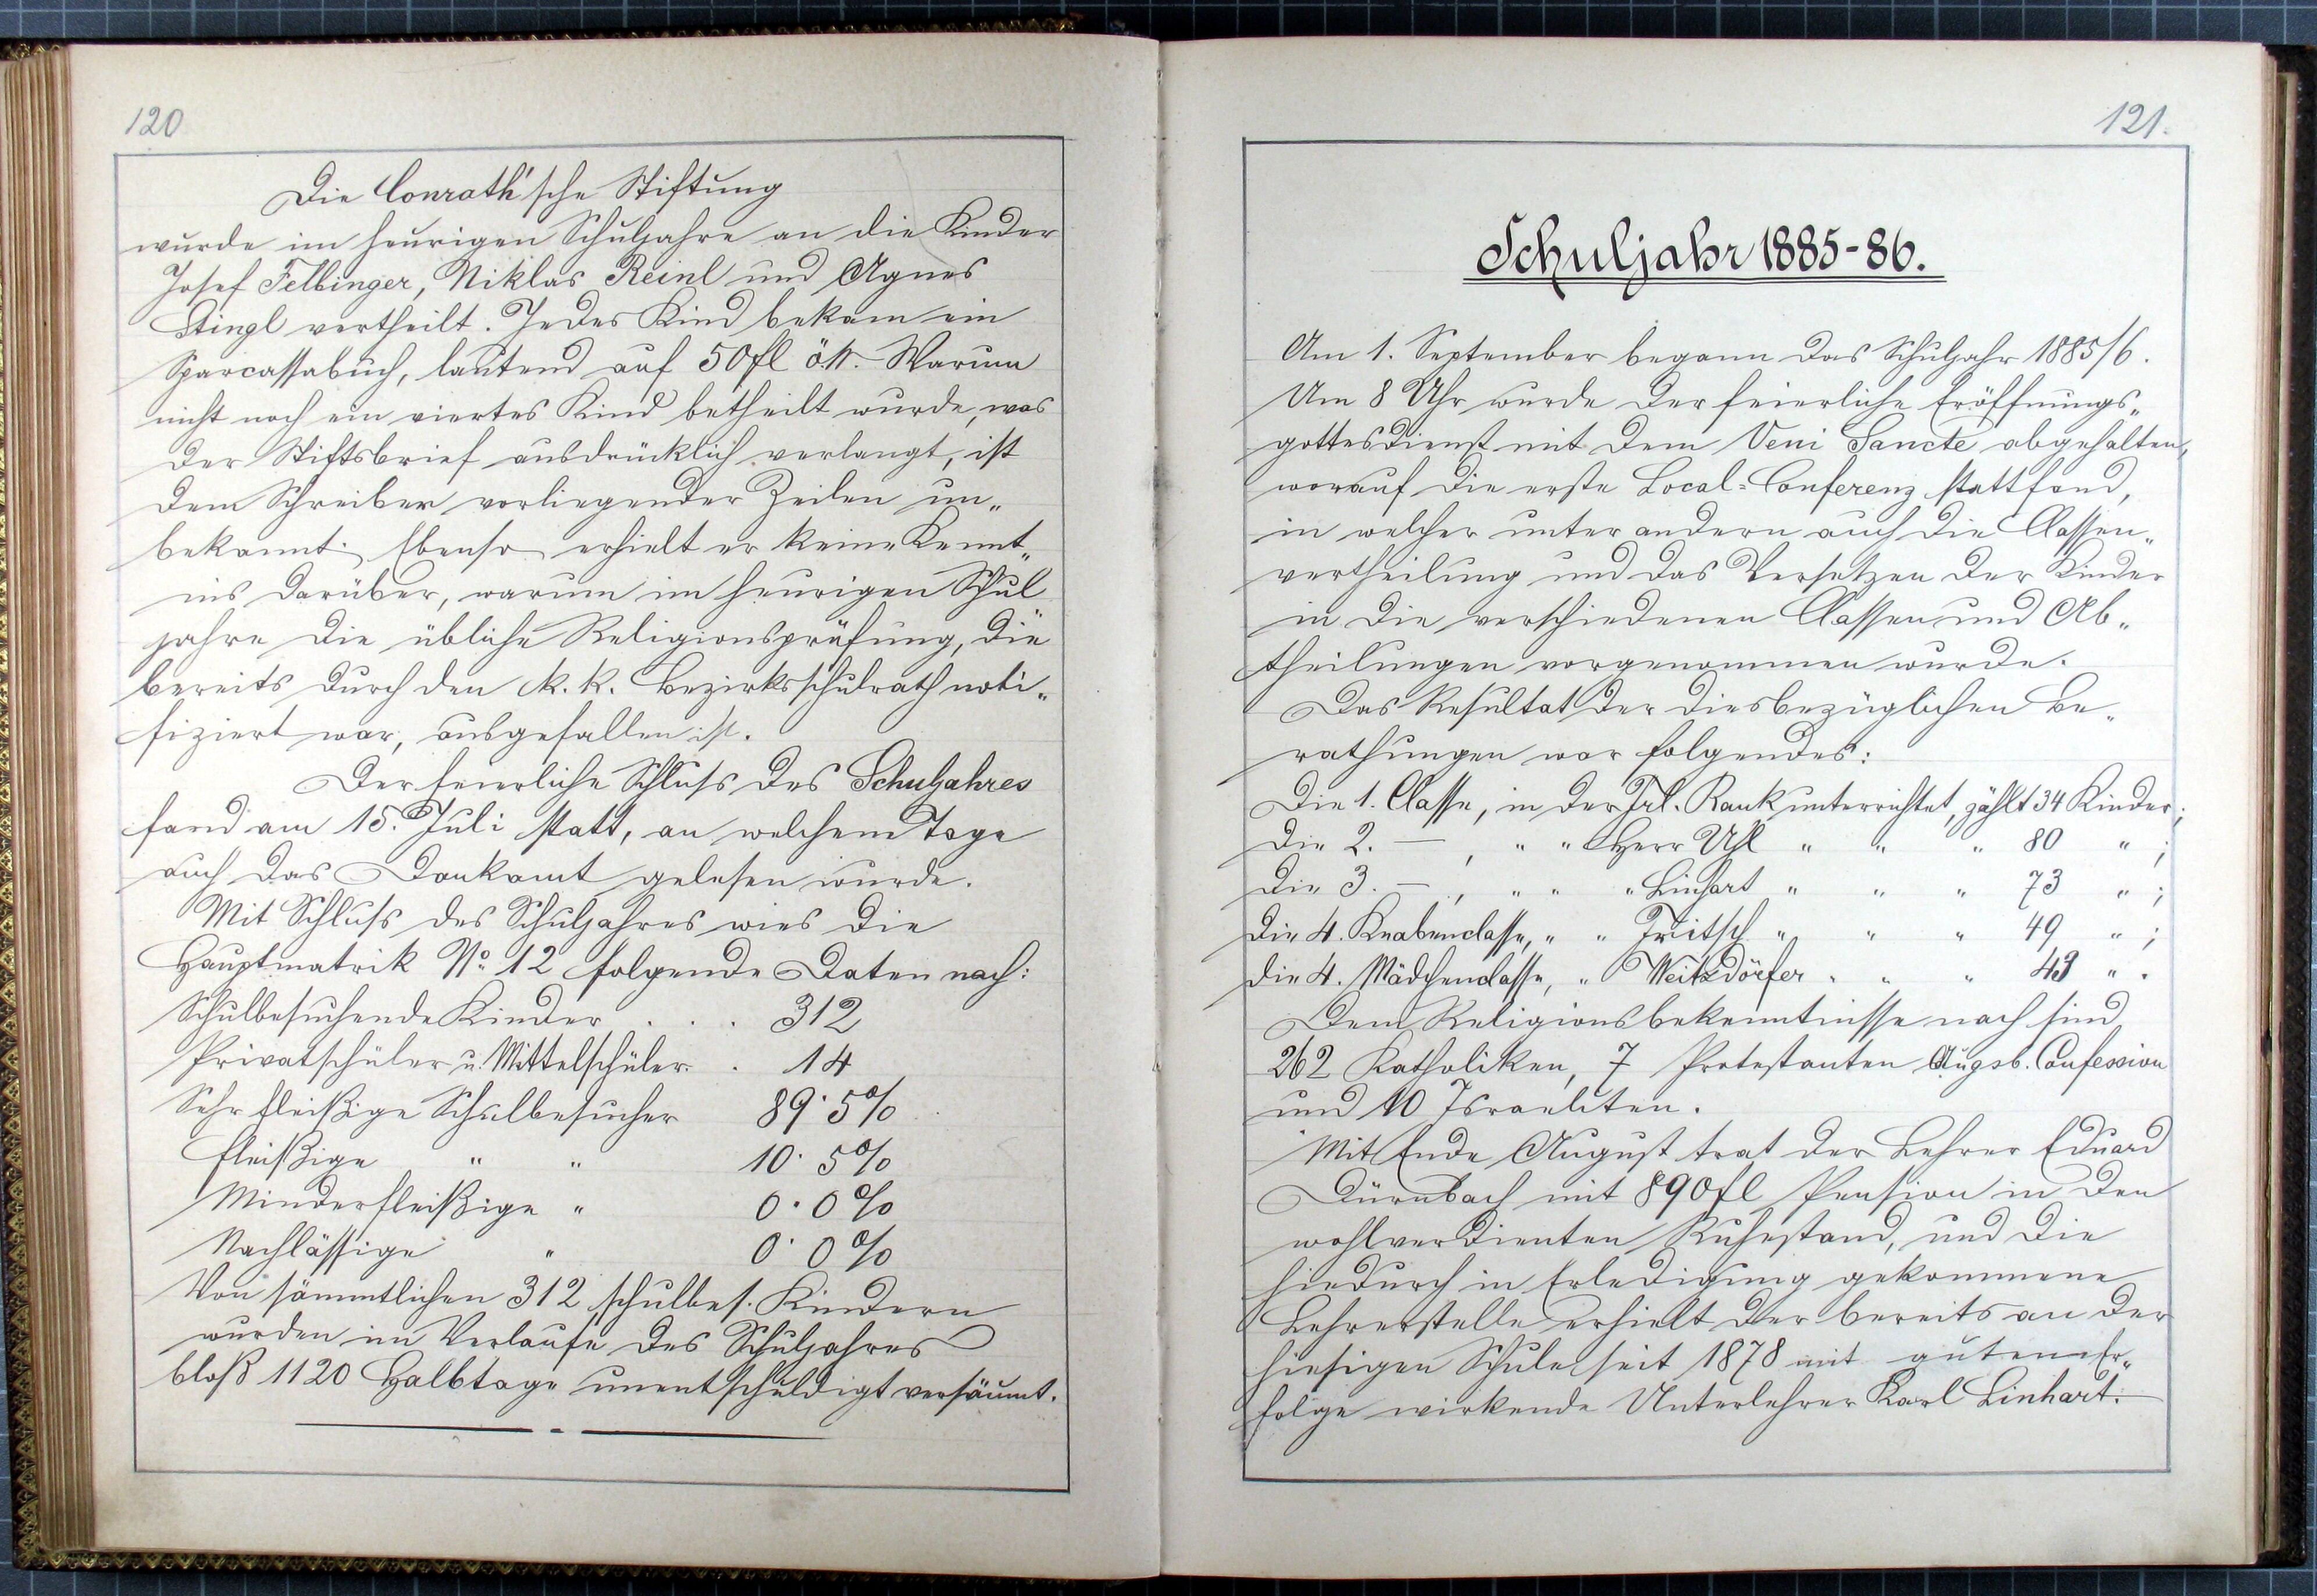 120
Die Conrath'sche Stiftung
wurde im heurigen Schuljahre an die Kinder
Josef Felbinger, Niklas Reinl und Agnes
Stingl vertheilt. Jedes Kind bekam ein
Sparcassabuch, lautend auf 50 fl ö.W. Warum
nicht noch ein viertes Kind betheilt wurde, was
der Stiftsbrief ausdrücklich verlangt, ist
dem Schreiber vorliegender Zeilen un„
bekannt. Ebenso erhielt er keine Kennt„
nis darüber, warum im heurigen Schul
jahre die übliche Religionsprüfung, die
bereits durch den k. k. Bezirksschulrath noti„
fiziert war, ausgefallen ist.
Der feierliche Schluss des Schuljahres
fand am 15. Juli statt, an welchem Tage
auch das Dankamt gelesen wurde.
Mit Schluss des Schuljahres wies die
Hauptmatrik No 12 folgende Daten nach:
Schulbesuchende Kinder . . . 312
Privatschüler u. Mittelschüler . 14
Sehr fleißige Schulbesucher 89·5%
fleißige " " 10·5%
Minderfleißige " 0·0%
Nachlässige " 0·0%
Von sämmtlichen 312 schulbes. Kindern
wurden im Verlaufe des Schuljahres
bloß 1120 Halbtage unentschuldigt versäumt.
121.
Schuljahr 1885-86.
Am 1. September begann das Schuljahr 1885/6.
Um 8 Uhr wurde der feierliche Eröffnungs„
gottesdienst mit dem Veni Sancte abgehalten,
worauf die erste Local-Conferenz stattfand,
in welcher unter andern auch die Classen„
vertheilung und das Versetzen der Kinder
in die verschiedenen Classen und Ab„
theilungen vorgenommen wurde.
Das Resultat der diesbezüglichen Be„
rathungen war folgendes:
Die 1. Classe, in der Frl. Rank unterrichtet, zählt 34 Kinder;
die 2. — , " " Herr Uhl " " " 80 " ;
die 3. — , " " " Linhart " " " 73 " ;
die 4. Knabenclasse, " " Fritsch " " " 49 " ;
die 4. Mädchenclasse, " Weitzdörfer " " " 43 " .
Dem Religionsbekenntnisse nach sind
262 Katholiken, 7 Protestanten Augsb. Confession
und 10 Israeliten.
Mit Ende August trat der Lehrer Eduard
Dürnbach mit 890 fl Pension in den
wohlverdienten Ruhestand, und die
hiedurch in Erledigung gekommene
Lehrerstelle erhielt der bereits an der
hiesigen Schule seit 1878 mit gutem Er„
folge wirkende Unterlehrer Karl Linhart.